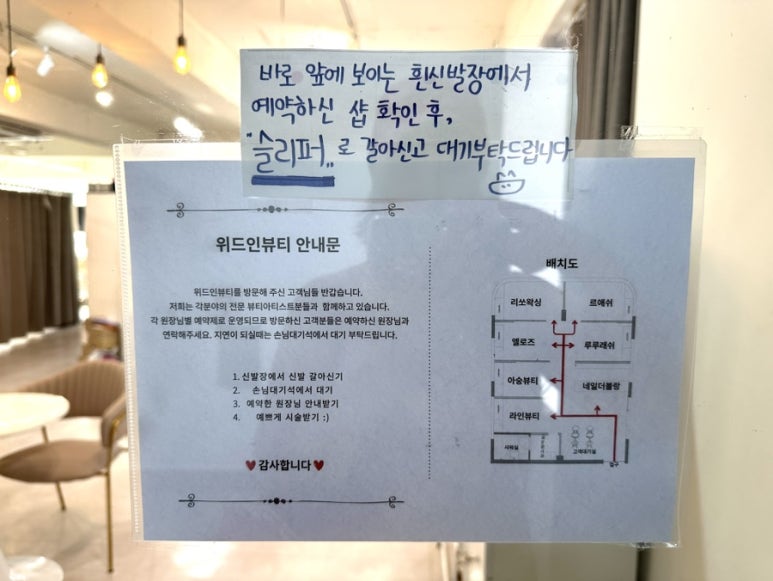 바로 앞에 보이는 흰신발장에서
예약하신 샵 확인 후,
"슬리퍼"로 갈아신고 대기부탁드립니다
위드인뷰티 안내문
위드인뷰티를 방문해 주신 고객님들 반갑습니다.
저희는 각분야의 전문 뷰티아티스트분들과 함께하고 있습니다.
각 원장님별 예약제로 운영되므로 방문하신 고객분들은 예약하신 원장님과
연락해주세요. 지연이 되실때는 손님대기석에서 대기 부탁드립니다.
1. 신발장에서 신발 갈아신기
2. 손님대기석에서 대기
3. 예약한 원장님 안내받기
4. 예쁘게 시술받기 :)
♥감사합니다♥
배치도
리쏘왁싱
르애쉬
엘로즈
루루래쉬
아숨뷰티
네일더볼랑
라인뷰티
샤워실
고객대기실
입구